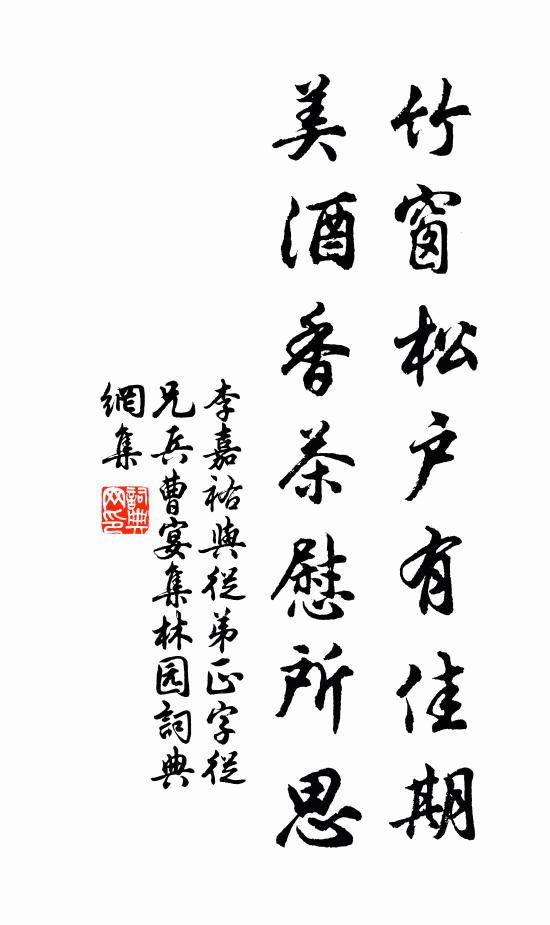 竹窗松户有佳期
美酒香茶慰所思
李嘉祐與從弟正字從
兄兵曹宴集林园詞典
網集
詞典网印